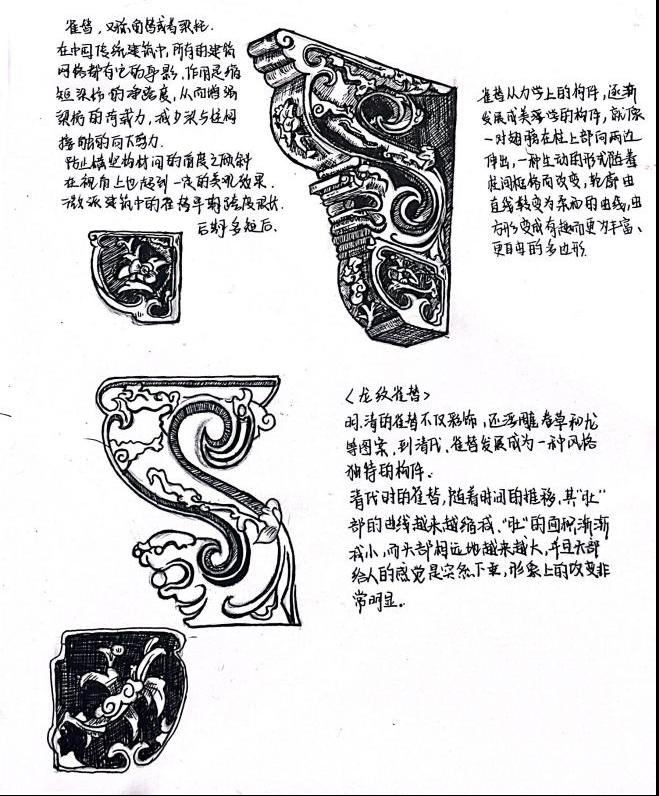 雀替，又称角替或者梁托.
在中国传统建筑中，所有的建筑
网络都有它的身影，作用是缩
短梁枋的净跨度，从而增强
梁枋的荷载力，减少梁与柱间
接触的向下剪力.
防止横竖构材间的角度之倾斜
在视角上也起到一定的美观效果.
徽派建筑中的雀替早期跨度很长
后期多短后.
雀替从力学上的构件，逐渐
发展成美学性的构件，就像
一对翅膀在柱上部向两边
伸出，一种生动的形式随着
柱间框格而改变，轮廓由
直线转变为柔和的曲线，由
方形变成有趣而更为丰富、
更自由的多边形.
〈龙纹雀替〉
明.清的雀替不仅彩饰，还浮雕卷草和龙
等图案，到清代、雀替发展成为一种风格
独特的构件.
清代时的雀替，随着时间的推移，其"肚"
部的曲线越来越缩减、"肚"的面积渐渐
减小，而头部相远地越来越大，并且头部
给人的感觉是突然下垂，形象上的改变非
常明显.